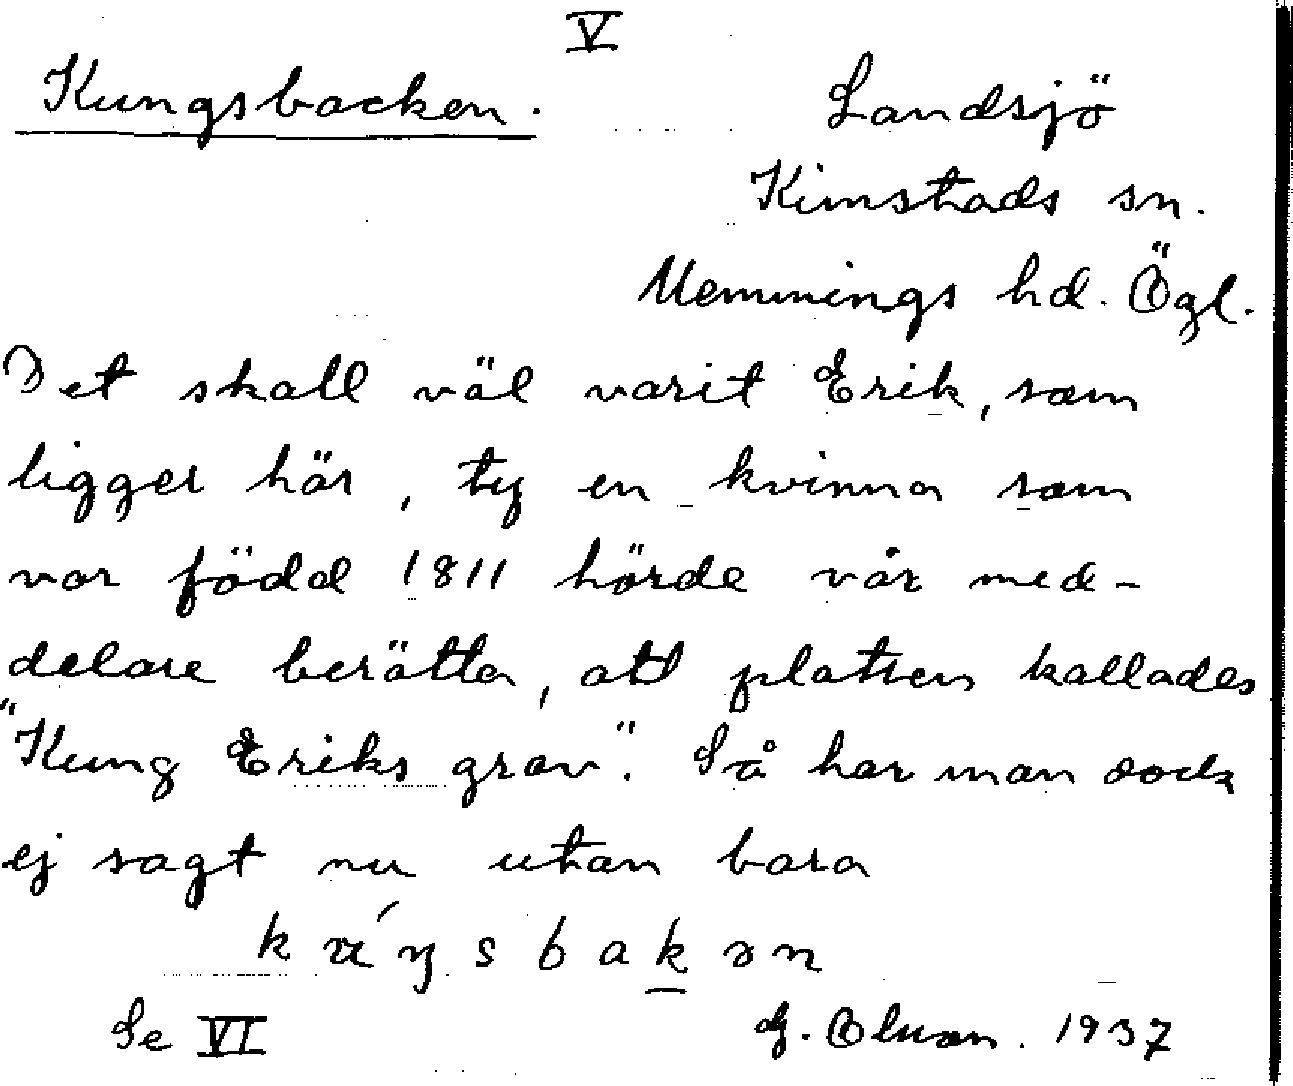 V
Kungsbacken. Landsjö
Kimstads sn.
Memmings hd. Ögl.
Det skall väl varit Erik, som
ligger här, ty en kvinna som
var född 1811 hörde vår med-
delare berätta, att platsen kallades
"Kung Eriks grav". Så har man dock
ej sagt nu utan bara
sbakən
Se VI G. 1937